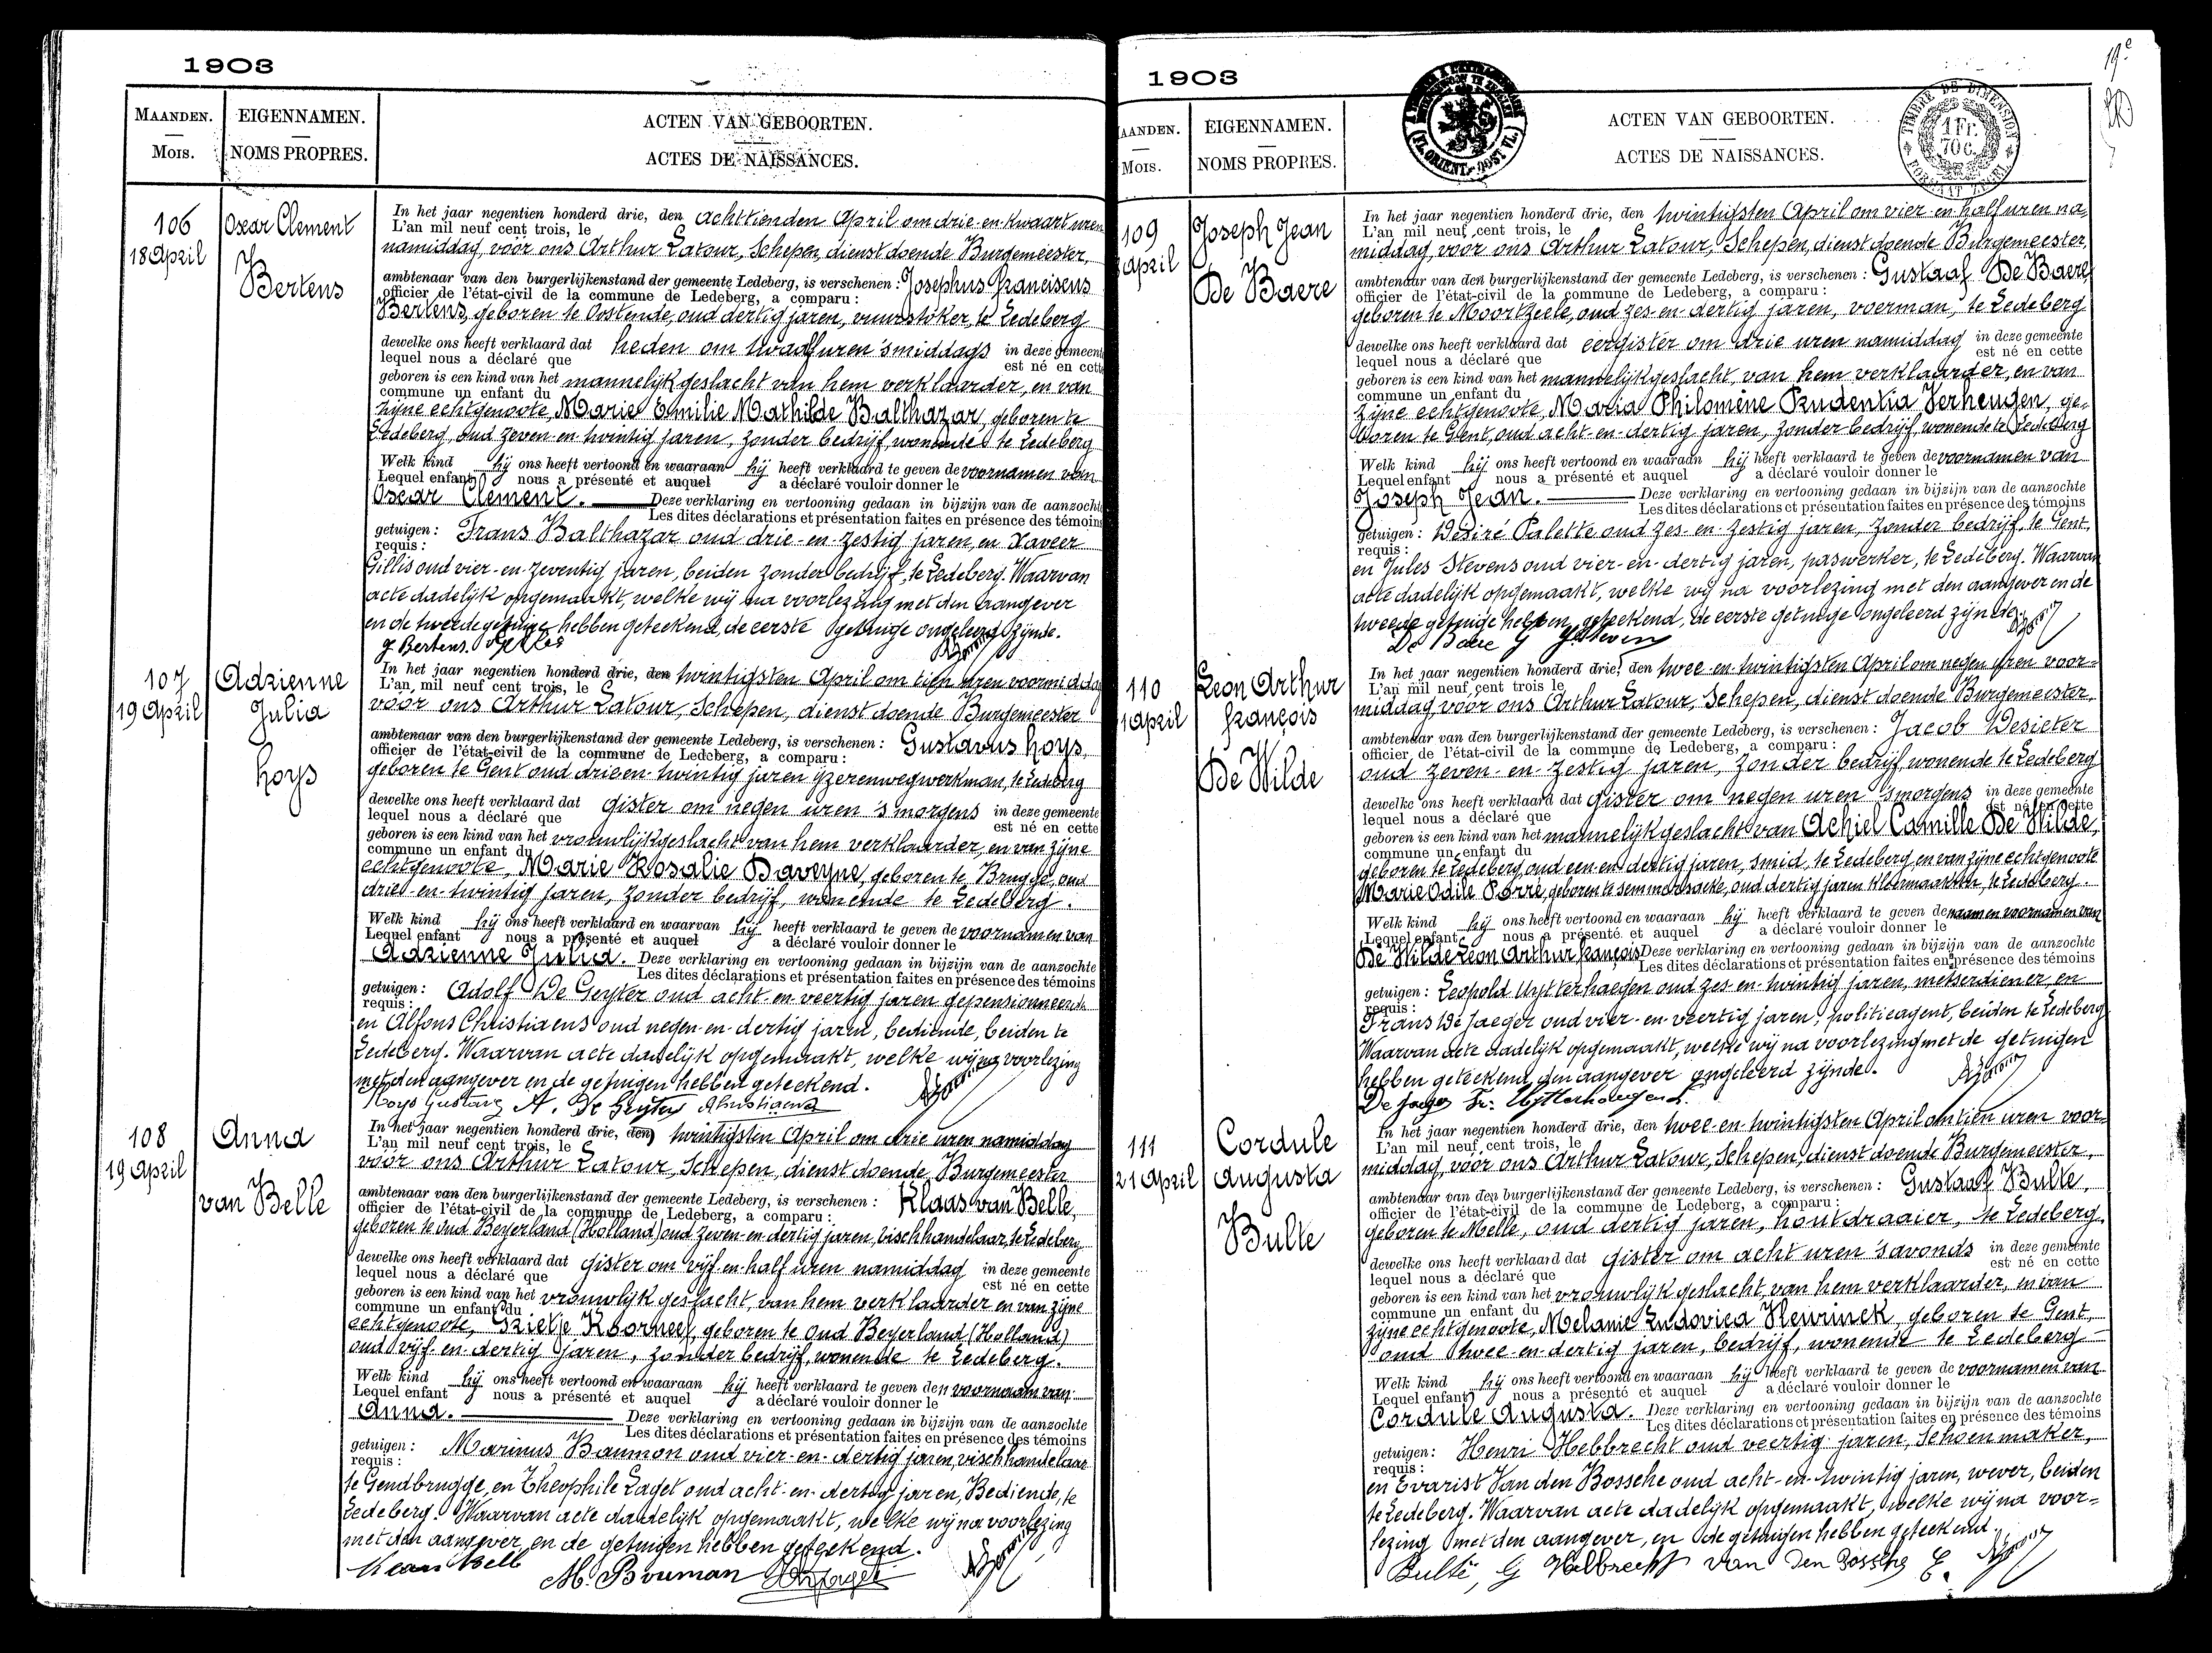 1903
MAANDEN.
MOIS.
EIGENNAMEN.
NOMS PROPRES.
ACTEN VAN GEBOORTEN.
ACTES DE NAISSANCES.
106
18 April
Oscar Clement
Bertens
In het jaar negentien honderd drie, den achttienden April om drie-en-kwaart uren
L'an mil neuf cent trois, le
namiddag, vóór ons Arthur Latour, Schepen, dienstdoende Burgemeester,
ambtenaar van den burgerlijkenstand der gemeente Ledeberg, is verschenen: Josephus Franciscus
officier de l'état-civil de la commune de Ledeberg, a comparu:
Bertens, geboren te Oostende, oud dertig jaren, vuurstoker, te Ledeberg
dewelke ons heeft verklaard dat heden om twaalf uren 's middags in deze gemeente
lequel nous a déclaré que est né en cette
geboren is een kind van het mannelijk geslacht van hem verklaarder, en van
commune un enfant du
zijne echtgenoote, Marie Emilie Mathilde Balthazar, geboren te
Ledeberg, oud zeven-en-twintig jaren, zonder bedrijf, wonende te Ledeberg
Welk kind hij ons heeft vertoond en waaraan hij heeft verklaard te geven de voornamen van
Lequel enfant nous a présenté et auquel a déclaré vouloir donner le
Oscar Clement. Deze verklaring en vertooning gedaan in bijzijn van de aanzochte
Les dites déclarations et présentation faites en présence des témoins
getuigen: Frans Balthazar oud drie-en-zestig jaren, en Xaveer
requis:
Gillis oud vier-en-zeventig jaren, beiden zonder bedrijf, te Ledeberg. Waarvan
acte dadelijk opgemaakt, welke wij na voorlezing met den aangever
en de tweede getuige hebben geteekend, de eerste getuige ongeleerd zijnde.
J Bertens
107
19 April
Adrienne
Julia
Hoys
In het jaar negentien honderd drie, den twintigsten April om tien uren voormiddag
L'an mil neuf cent trois, le
vóór ons Arthur Latour, Schepen, dienstdoende Burgemeester
ambtenaar van den burgerlijkenstand der gemeente Ledeberg, is verschenen: Gustavus Hoys,
officier de l'état-civil de la commune de Ledeberg, a comparu:
geboren te Gent oud drie en-twintig jaren ijzerenwegwerkman, te Ledeberg
dewelke ons heeft verklaard dat gister om negen uren 's morgens in deze gemeente
lequel nous a déclaré que est né en cette
geboren is een kind van het vrouwlijk geslacht van hem verklaarder, en van zijne
commune un enfant du
echtgenoote, Marie Rosalie Daveyne, geboren te Brugge, oud
drie-en-twintig jaren, zonder bedrijf, wonende te Ledeberg.
Welk kind hij ons heeft vertoond en waarvan hij heeft verklaard te geven de voornamen van
Lequel enfant nous a présenté et auquel a déclaré vouloir donner le
Adrienne Julia. Deze verklaring en vertooning gedaan in bijzijn van de aanzochte
Les dites déclarations et présentation faites en présence des témoins
getuigen: Adolf De Geyter oud acht-en-veertig jaren gepensionneerde
requis:
en Alfons Christiaens oud negen-en-dertig jaren, bediende, beiden te
Ledeberg. Waarvan acte dadelijk opgemaakt, welke wij na voorlezing
met den aangever en de getuigen hebben geteekend.
Hoys Gustave A. De Geyter AChristiaens
108
19 April
Anna
van Belle
In het jaar negentien honderd drie, den twintigsten April om drie uren namiddag
L'an mil neuf cent trois, le
vóór ons Arthur Latour, Schepen, dienstdoende Burgemeester
ambtenaar van den burgerlijkenstand der gemeente Ledeberg, is verschenen: Klaas van Belle,
officier de l'état-civil de la commune de Ledeberg, a comparu:
geboren te oud Beyerland (Holland) oud zeven-en-dertig jaren, vischhandelaar, te Ledeberg
dewelke ons heeft verklaard dat gister om vijf-en-half uren namiddag in deze gemeente
lequel nous a déclaré que est né en cette
geboren is een kind van het vrouwlijk geslacht, van hem verklaarder en van zijne
commune un enfant du
echtgenoote, Grietje Koorneef, geboren te oud Beyerland (Holland)
oud vijf-en-dertig jaren, zonder bedrijf, wonende te Ledeberg.
Welk kind hij ons heeft vertoond en waaraan hij heeft verklaard te geven den voornaam van
Lequel enfant nous a présenté et auquel a déclaré vouloir donner le
Anna. Deze verklaring en vertooning gedaan in bijzijn van de aanzochte
Les dites déclarations et présentation faites en présence des témoins
getuigen: Marinus Bauman oud vier-en-dertig jaren, vischhandelaar
requis:
te Gendbrugge, en Theophile Laget oud acht-en-dertig jaren, Bediende, te
Ledeberg. Waarvan acte dadelijk opgemaakt, welke wij na voorlezing
met den aangever en de getuigen hebben geteekend.
K van Bell M. Bouman
1903
19e
AANDEN.
MOIS.
EIGENNAMEN.
NOMS PROPRES.
ACTEN VAN GEBOORTEN.
ACTES DE NAISSANCES.
(FL. ORIENT.-OOST VL.)
TIMBRE DE DIMENSION
1 FR.
70 C.
FORMAAT ZEGEL
109
April
Joseph Jean
De Baere
In het jaar negentien honderd drie, den twintigsten April om vier-en-half uren na-
L'an mil neuf cent trois, le
middag, vóór ons Arthur Latour, Schepen, dienstdoende Burgemeester,
ambtenaar van den burgerlijkenstand der gemeente Ledeberg, is verschenen: Gustaaf De Baere,
officier de l'état-civil de la commune de Ledeberg, a comparu:
geboren te Moortzeele, oud zes-en-dertig jaren, voerman, te Ledeberg
dewelke ons heeft verklaard dat eergister om drie uren namiddag in deze gemeente
lequel nous a déclaré que est né en cette
geboren is een kind van het mannelijk geslacht, van hem verklaarder, en van
commune un enfant du
zijne echtgenoote, Maria Philomène Prudentia Verheugen, ge-
boren te Gent, oud acht-en-dertig jaren, zonder bedrijf, wonende te Ledeberg
Welk kind hij ons heeft vertoond en waaraan hij heeft verklaard te geven de voornamen van
Lequel enfant nous a présenté et auquel a déclaré vouloir donner le
Joseph Jean. Deze verklaring en vertooning gedaan in bijzijn van de aanzochte
Les dites déclarations et présentation faites en présence des témoins
getuigen: Désiré Palette oud zes-en-zestig jaren, zonder bedrijf, te Gent,
requis:
en Jules Stevens oud vier-en-dertig jaren, paswerker, te Ledeberg. Waarvan
acte dadelijk opgemaakt, welke wij na voorlezing met den aangever en de
tweede getuige hebben geteekend, de eerste getuige ongeleerd zijnde.
De Baere G JStevens
110
1 April
Leon Arthur
François
De Wilde
In het jaar negentien honderd drie, den twee-en-twintigsten April om negen uren voor-
L'an mil neuf cent trois le
middag, vóór ons Arthur Latour, Schepen, dienstdoende Burgemeester,
ambtenaar van den burgerlijkenstand der gemeente Ledeberg, is verschenen: Jacob Desieter
officier de l'état-civil de la commune de Ledeberg, a comparu:
oud zeven-en-zestig jaren, zonder bedrijf, wonende te Ledeberg
dewelke ons heeft verklaard dat gister om negen uren 's morgens in deze gemeente
lequel nous a déclaré que est né en cette
geboren is een kind van het mannelijk geslacht van Achiel Camille De Wilde,
commune un enfant du
geboren te Ledeberg, oud een-en-dertig jaren, smid, te Ledeberg en van zijne echtgenoote
Marie Odile Porré, geboren te Semmersaeke, oud dertig jaren kleermaakster, te Ledeberg.
Welk kind hij ons heeft vertoond en waaraan hij heeft verklaard te geven de naam en voornamen van
Lequel enfant nous a présenté et auquel a déclaré vouloir donner le
De Wilde Leon Arthur François Deze verklaring en vertooning gedaan in bijzijn van de aanzochte
Les dites déclarations et présentation faites en présence des témoins
getuigen: Leopold Uytterhaegen oud zes-en-twintig jaren, metserdiener, en
requis:
Frans De Jaeger oud vier-en-veertig jaren, politieagent, beiden te Ledeberg
Waarvan acte dadelijk opgemaakt, welke wij na voorlezing met de getuigen
hebben geteekend, den aangever ongeleerd zijnde.
De Jaeger Fr: Uytterhaegen L.
111
21 April
Cordule
Augusta
Bulte
In het jaar negentien honderd drie, den twee-en-twintigsten April om tien uren voor-
L'an mil neuf cent trois, le
middag, vóór ons Arthur Latour, Schepen, dienstdoende Burgemeester,
ambtenaar van den burgerlijkenstand der gemeente Ledeberg, is verschenen: Gustaaf Bulte,
officier de l'état-civil de la commune de Ledeberg, a comparu:
geboren te Melle, oud dertig jaren, houtdraaier, te Ledeberg,
dewelke ons heeft verklaard dat gister om acht uren 's avonds in deze gemeente
lequel nous a déclaré que est né en cette
geboren is een kind van het vrouwlijk geslacht, van hem verklaarder, en van
commune un enfant du
zijne echtgenoote, Melanie Ludovica Heurinck, geboren te Gent,
oud twee-en-dertig jaren, bedrijf, wonende te Ledeberg
Welk kind hij ons heeft vertoond en waaraan hij heeft verklaard te geven de voornamen van
Lequel enfant nous a présenté et auquel a déclaré vouloir donner le
Cordule Augusta. Deze verklaring en vertooning gedaan in bijzijn van de aanzochte
Les dites déclarations et présentation faites en présence des témoins
getuigen: Henri Hebbrecht oud veertig jaren, Schoenmaker,
requis:
en Evarist Van den Bossche oud acht-en-twintig jaren, wever, beiden
te Ledeberg. Waarvan acte dadelijk opgemaakt, welke wij na voor-
lezing met den aangever, en de getuigen hebben geteekend
Bulté, G Hebbrecht Van Den Bossche E.